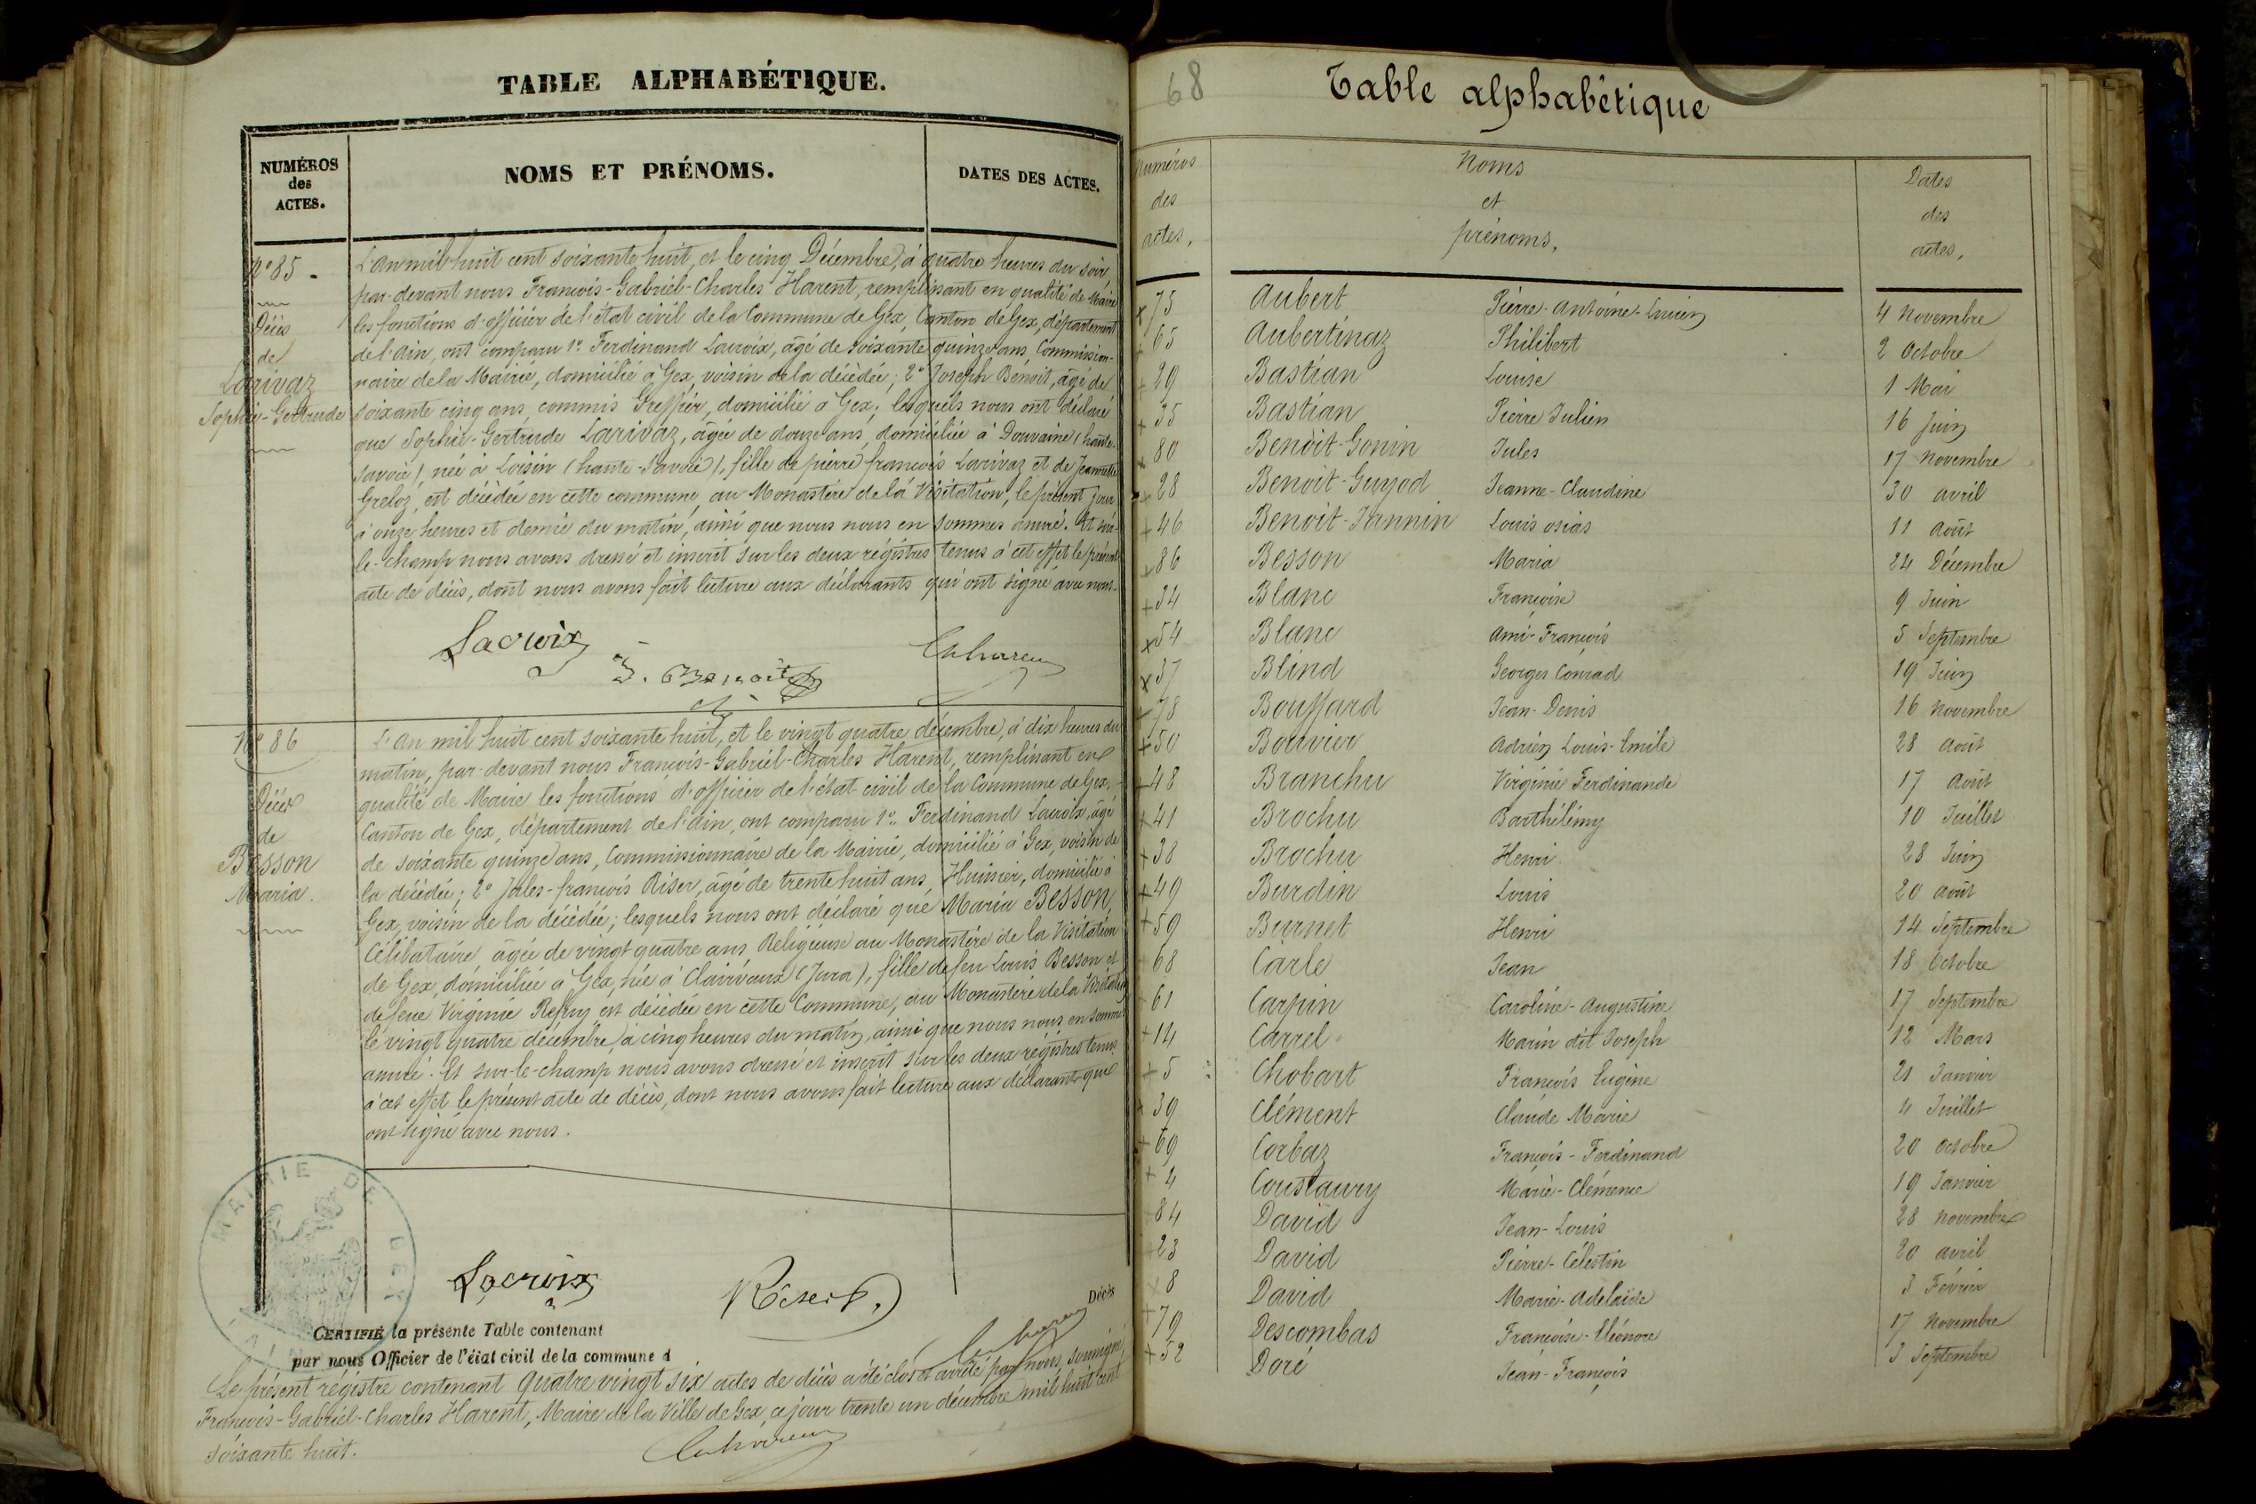 TABLE ALPHABÉTIQUE.
NUMÉROS
des
ACTES.
NOMS ET PRÉNOMS.
DATES DES ACTES.
N° 85 -
Décès
de
Larivaz
Sophie-Gertrude
L'An mil huit cent soixante huit, et le cinq Décembre, à quatre heures du soir
par-devant nous François-Gabriel-Charles Harent, remplissant en qualité de Maire
les fonctions d'officier de l'état civil de la Commune de Gex, Canton de Gex, département
de l'Ain, ont comparu 1° Ferdinand Lacroix, âgé de soixante quinze ans, Commission-
naire de la Mairie, domicilié à Gex, voisin de la décédée; 2° Joseph Benoit, âgé de
soixante cinq ans, commis Greffier, domicilié à Gex; lesquels nous ont déclaré
que Sophie-Gertrude Larivaz, âgée de douze ans, domiciliée à Douvaine (haute-
savoie), née à Loisin (haute-Savoie), fille de pierre françois Larivaz et de Jeannette
Greloz, est décédée en cette commune, au Monastère de la Visitation, le présent jour
à onze heures et demie du matin, ainsi que nous nous en sommes assuré. Et sur-
le-champ nous avons dressé et inscrit sur les deux régistres tenus à cet effet le présent
acte de décès, dont nous avons fait lecture aux déclarants qui ont signé avec nous.
Lacroix
J. Benoit
N° 86
Décès
de
Besson
Maria.
L'An mil huit cent soixante huit, et le vingt quatre décembre, à dix heures du
matin, par-devant nous François-Gabriel-Charles Harent, remplissant en
qualité de Maire les fonctions d'officier de l'état civil de la Commune de Gex,
Canton de Gex, département de l'Ain, ont comparu 1°. Ferdinand Lacroix, âgé
de soixante quinze ans, Commissionnaire de la Mairie, domicilié à Gex, voisin de
la décédée; 2° Jules-françois Riser, âgé de trente huit ans, Huissier, domicilié à
Gex, voisin de la décédée; lesquels nous ont déclaré que Maria Besson,
Célibataire âgée de vingt quatre ans, Religieuse au Monastère de la Visitation
de Gex, domiciliée à Gex, née à Clairvaux (Jura), fille de feu Louis Besson et
de feue Virginie est décédée en cette Commune, au Monastère de la Visitation
le vingt quatre décembre, à cinq heures du matin, ainsi que nous nous en sommes
assuré. Et sur-le-champ nous avons dressé et inscrit sur les deux régistres tenus
à cet effet le présent acte de décès, dont nous avons fait lecture aux déclarants qui
ont signé avec nous.
MAIRIE DE GEX
AIN
Lacroix
Riser
Décès
CERTIFIÉ la présente Table contenant
par nous Officier de l'état civil de la commune d
Le présent régistre contenant quatre vingt six actes de décès a été clos et arrêté par nous, soussigné,
François-Gabriel-Charles Harent, Maire de la Ville de Gex, ce jour trente un décembre mil huit cent
soixante huit.
68
Table alphabétique
Numéros
des
actes.
Noms
et
prénoms.
Dates
des
actes.
x 75 Aubert Pierre-Antoine-Lucien 4 Novembre
+ 65 Aubertinaz Philibert 2 Octobre
+ 29 Bastian Louise 1 Mai
+ 35 Bastian Pierre Julien 16 Juin
x 80 Benoit-Gonin Jules 17 Novembre
+ 28 Benoit-Guyod Jeanne-Claudine 30 avril
+ 46 Benoit-Jannin Louis osias 11 Août
x 86 Besson Maria 24 Décembre
+ 34 Blanc Françoise 9 Juin
x 54 Blanc Ami-François 5 Septembre
x 37 Blind Georges Conrad 19 Juin
+ 78 Bouffard Jean-Denis 16 Novembre
+ 50 Bouvier Adrien Louis-Emile 28 Août
+ 48 Branchu Virginie Ferdinande 17 Août
+ 41 Brochu Barthélémy 10 Juillet
+ 38 Brochu Henri 28 Juin
+ 49 Burdin Louis 20 Août
+ 59 Burnet Henri 14 Septembre
+ 68 Carle Jean 18 Octobre
+ 61 Carpin Caroline-Augustine 17 Septembre
+ 14 Carrel Marin dit Joseph 12 Mars
+ 5 Chobart François Eugène 21 Janvier
+ 39 Clément Claude Marie 4 Juillet
+ 69 Corbaz François-Ferdinand 20 Octobre
+ 4 Coustaury Marie-Clémence 19 Janvier
+ 84 David Jean-Louis 28 Novembre
+ 23 David Pierre-Célestin 20 avril
x 8 David Marie-Adélaïde 3 Février
+ 79 Descombas Françoise-Eléonore 17 Novembre
+ 52 Doré Jean-François 3 Septembre